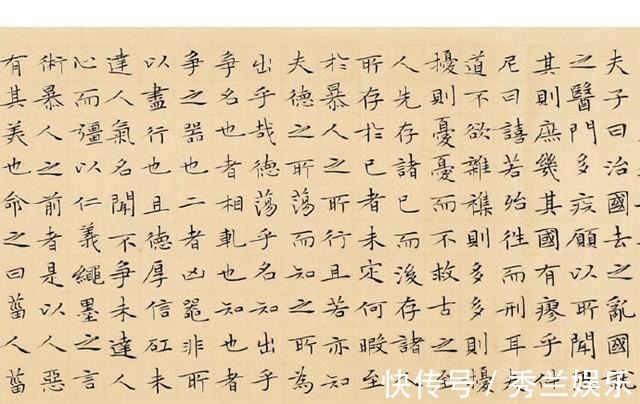 夫子曰治國去之亂國
之醫門多疾願以所聞
其則庶幾其國有瘳乎仲
尼曰譆若殆往而刑耳夫
道不欲雜襍則多多則擾
擾則憂憂而不救古之至
人先存諸己而後存諸
所存於己者未定何暇至
於暴人之所行且若亦知
夫德之所蕩而知之所為
出乎哉德蕩乎名知出乎
爭名也者相軋也知也者
爭之器也二者凶器非所
以盡行也且德厚信矼未
達人氣名聞不爭未達人
心而彊以仁義繩墨之言
術暴人之前者是以人惡
有其美也命之曰菑人菑
快传号 / 秀兰娱乐